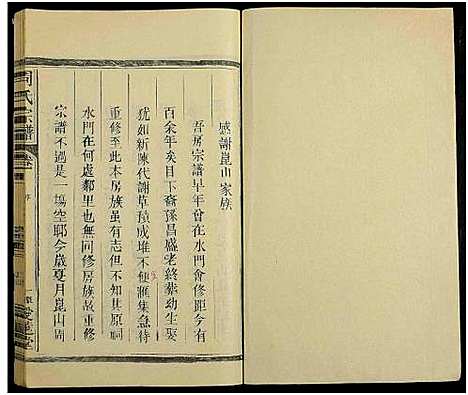 感謝崑山家族
吾房宗譜早年曾在水門會修距今有
百余年矣目下裔孫昌盛老終幼生娶
犹如新陳代謝草預成堆不便滙集急待
重修至此本房族虽有志但不知其原祠
水門在何處鄰里也無同修房族故重修
宗譜不過是一塲空耶今歲夏月崑山周
周氏宗譜
卷
序
愛蓮堂